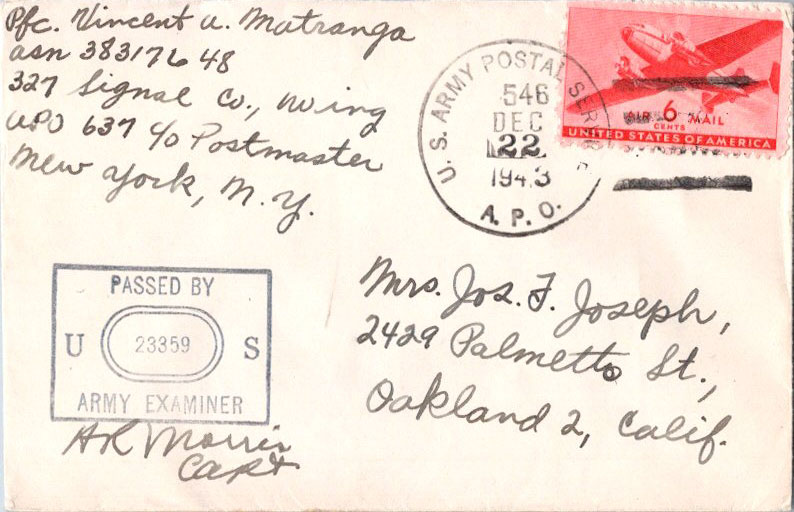 Pfc. Vincent A. Matranga
asn 38317648
327 Signal Co., Wing
APO 637 c/o Postmaster
New York, N.Y.
U. S. ARMY POSTAL SERVICE
546
DEC
22
1943
A. P. O.
AIR 6 MAIL
CENTS
UNITED STATES OF AMERICA
PASSED BY
U 23359 S
ARMY EXAMINER
AR Morris
Capt
Mrs. Jos. F. Joseph,
2429 Palmetto St.,
Oakland 2, Calif.